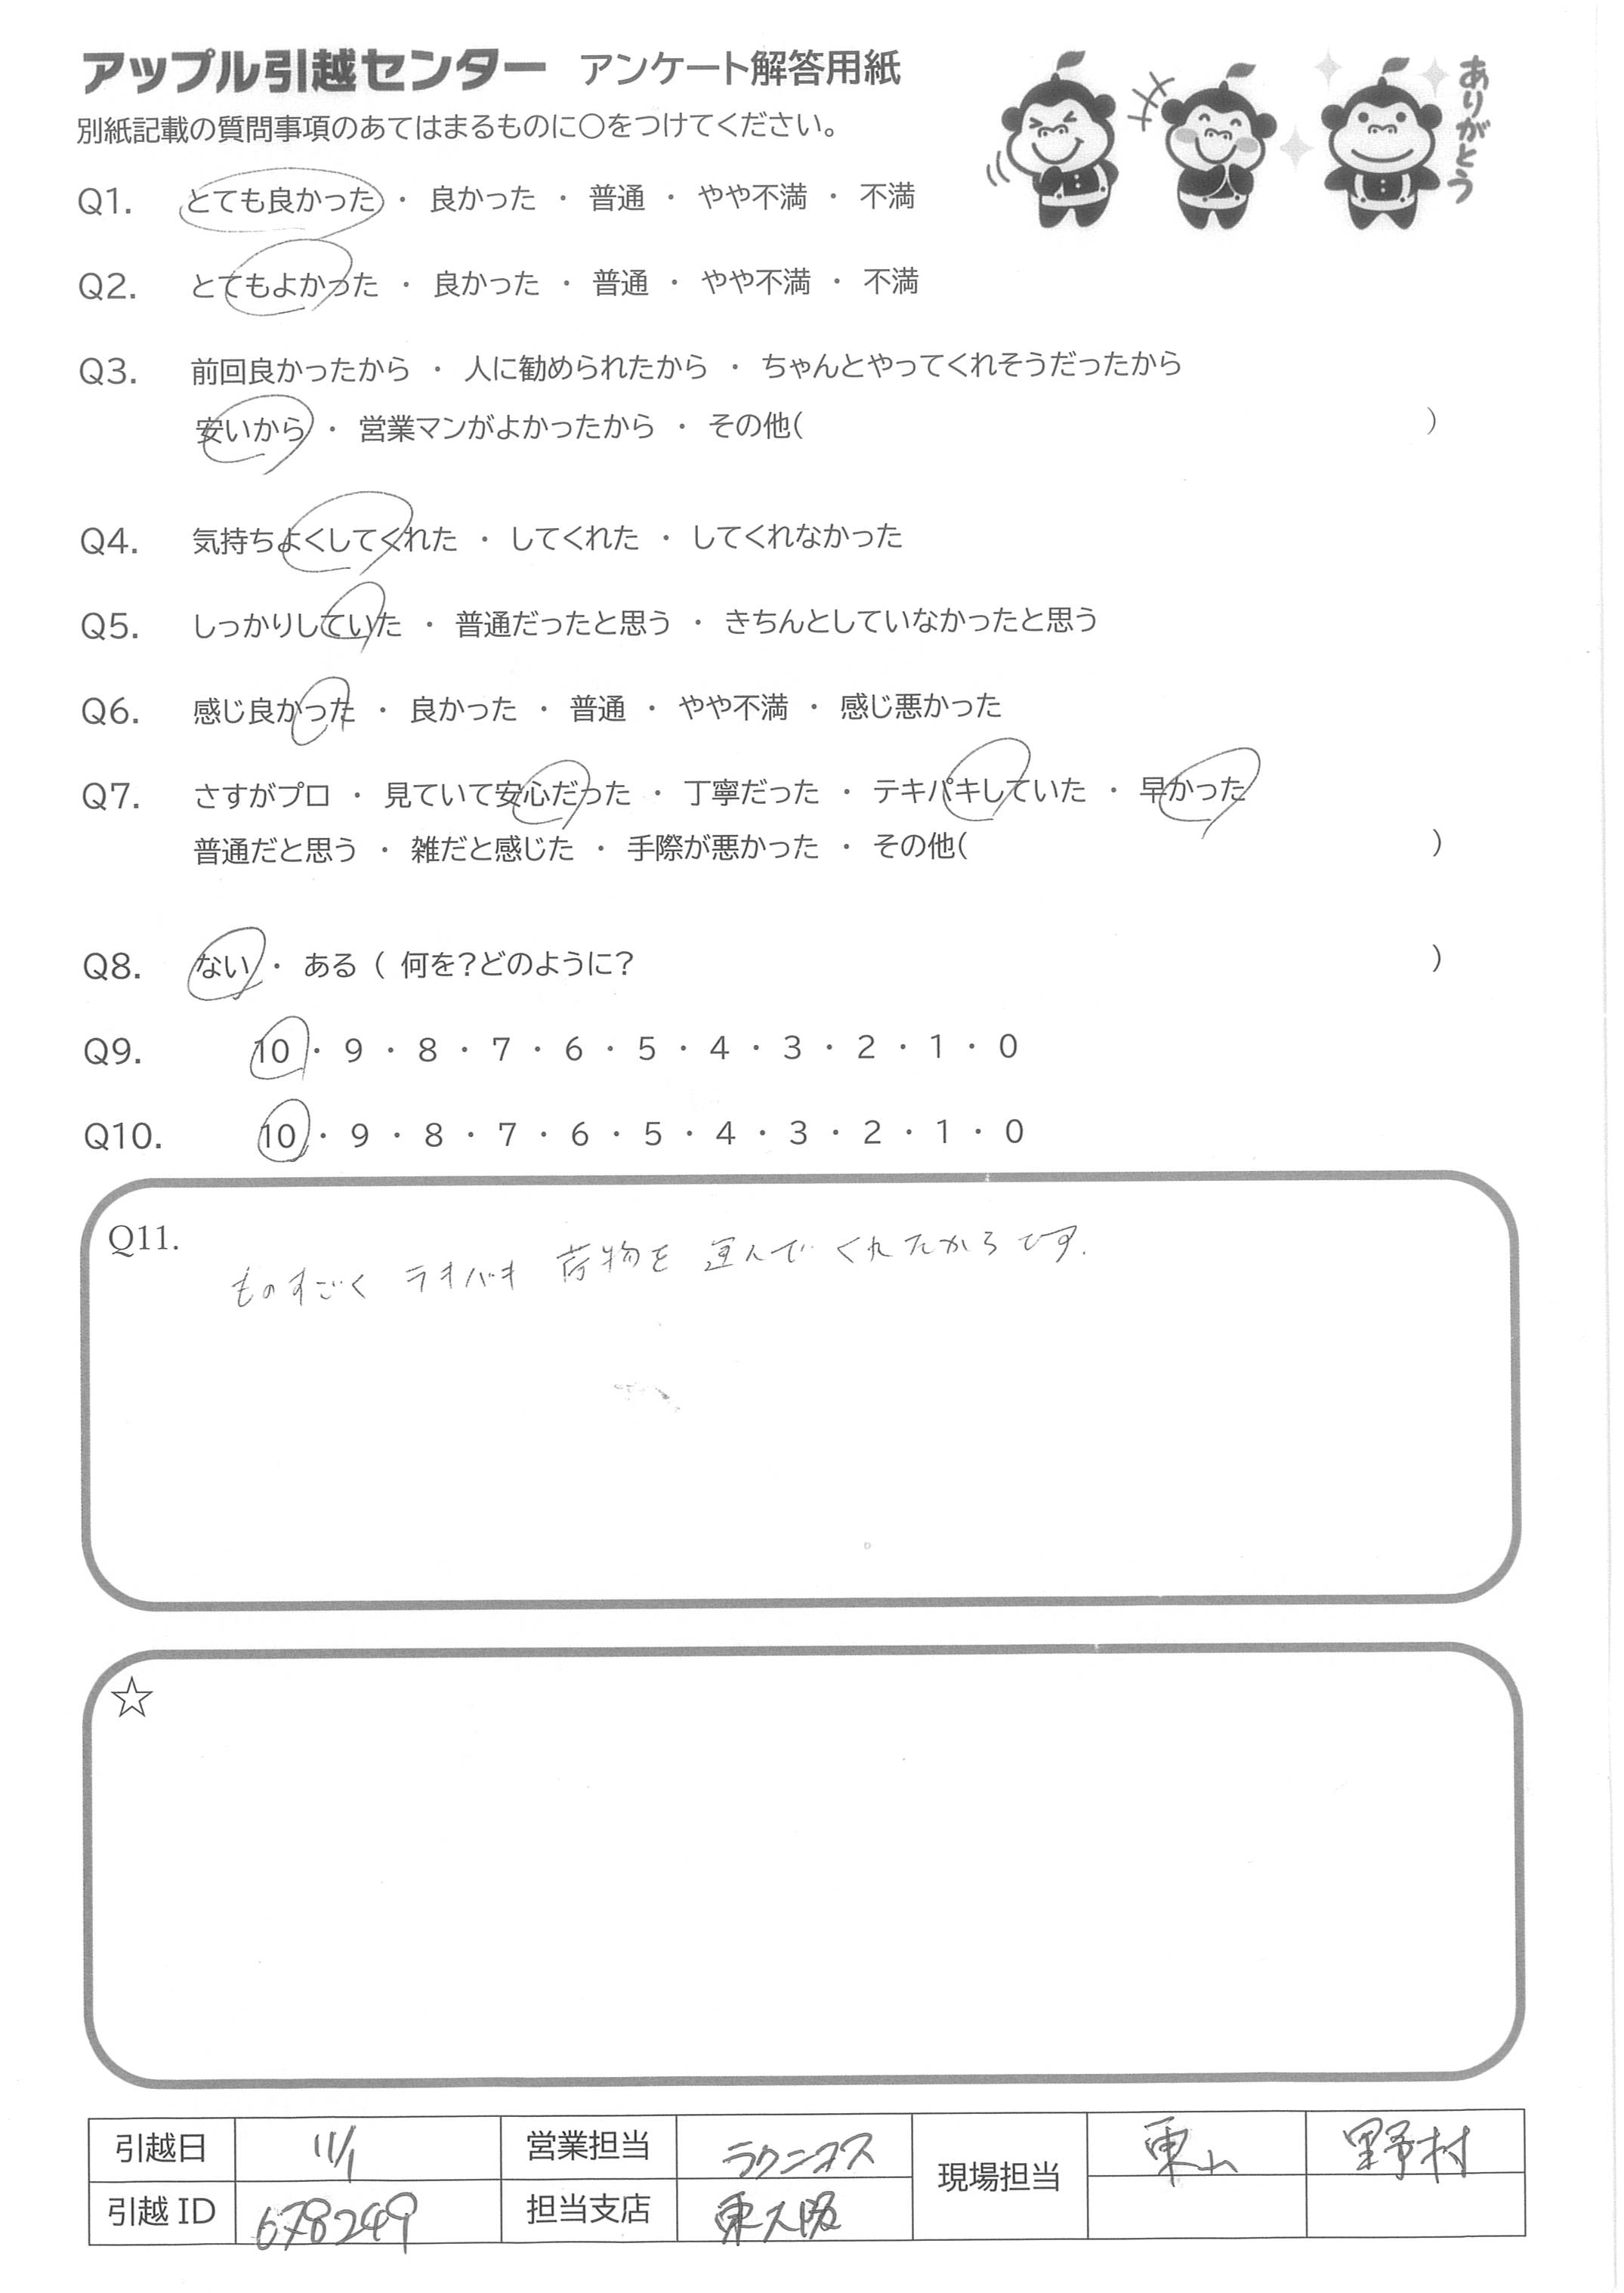 アップル引越センター アンケート解答用紙
別紙記載の質問事項のあてはまるものに〇をつけてください。
ありがとう
Q1. とても良かった ・ 良かった ・ 普通 ・ やや不満 ・ 不満
Q2. とてもよかった ・ 良かった ・ 普通 ・ やや不満 ・ 不満
Q3. 前回良かったから ・ 人に勧められたから ・ ちゃんとやってくれそうだったから
安いから ・ 営業マンがよかったから ・ その他( )
Q4. 気持ちよくしてくれた ・ してくれた ・ してくれなかった
Q5. しっかりしていた ・ 普通だったと思う ・ きちんとしていなかったと思う
Q6. 感じ良かった ・ 良かった ・ 普通 ・ やや不満 ・ 感じ悪かった
Q7. さすがプロ ・ 見ていて安心だった ・ 丁寧だった ・ テキパキしていた ・ 早かった
普通だと思う ・ 雑だと感じた ・ 手際が悪かった ・ その他( )
Q8. ない ・ ある ( 何を?どのように? )
Q9. 10 ・ 9 ・ 8 ・ 7 ・ 6 ・ 5 ・ 4 ・ 3 ・ 2 ・ 1 ・ 0
Q10. 10 ・ 9 ・ 8 ・ 7 ・ 6 ・ 5 ・ 4 ・ 3 ・ 2 ・ 1 ・ 0
Q11.
ものすごく テキパキ 荷物を 運んで くれたからです.
☆
引越日 11/1 営業担当 現場担当 東山 野村
引越 ID 678249 担当支店 東大阪